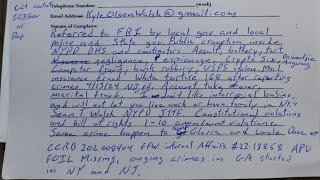 Telephone Number: (work)
Email Address: Kyle.OlsenWalsh@gmail.com
Nature of Complaint:
Referred to FBI by local gov and local
Police and State gov. Public corruption inside
NYPD DHS and contractors Assault, battery, tort
negligence, espionage, Crypto Six,
Computer fraud with robbery, USPS stolen Mail
insurance fraud. White torture 168 after reporting
crimes 9/13/24 NJ pd. Account take over
marital fraud. "I do not like interracial babies,
and will not let you live work or have family in NY."
Sean T Walsh NYPD JTTF Constitutional violations
and bill of rights 1-10 amendment violations.
Same crime happen to Gloria and Uncle Dave at
CCRB 202009404 FFW internal Affairs #22 18858 APU
FOIL Missing, ongoing crimes in GA started
in NY and NJ.